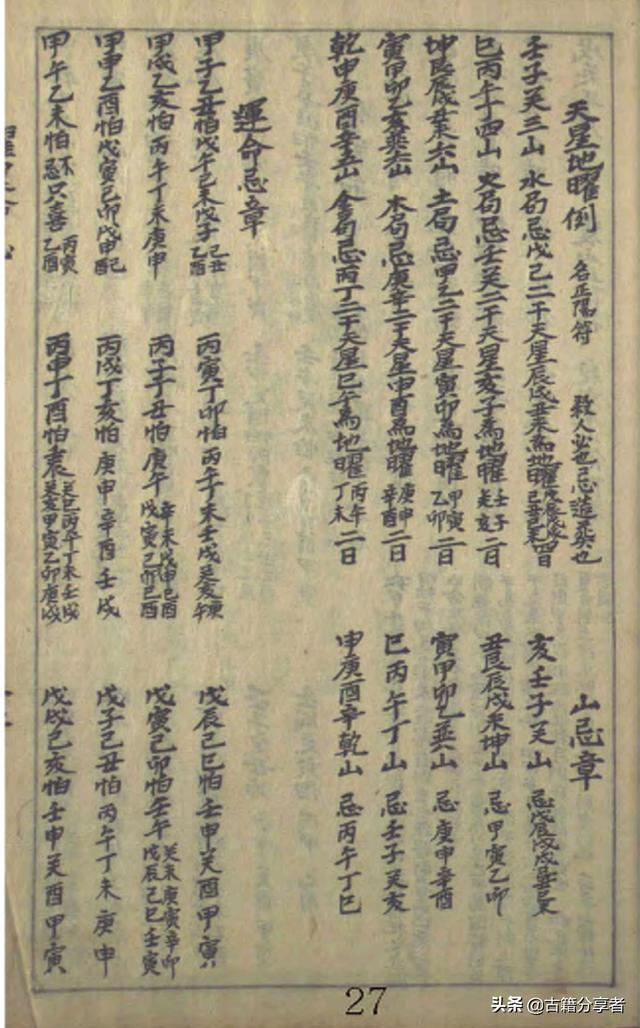 天星地曜倒 名正陽符 殺人必也忌造葬也 山忌章
壬子癸三山 水局忌戊己二干天星辰戌丑未為地曜 戊辰戊戌己丑己未四日 亥壬子癸山 忌戊辰戊戌己未
巳丙午丁四山 火局忌壬癸二干天星亥子為地曜 壬子癸亥二日 丑艮辰戌未坤山 忌甲寅乙卯
坤艮辰戌丑未六山 土局忌甲乙二干天星寅卯為地曜 甲寅乙卯二日 寅甲卯乙巽山 忌庚申辛酉
寅甲卯乙亥巽六山 木局忌庚辛二干天星申酉為地曜 庚申辛酉二日 巳丙午丁山 忌壬子癸亥
乾申庚酉辛五山 金局忌丙丁二干天星巳午為地曜 丙午丁未二日 申庚酉辛乾山 忌丙午丁巳
運命忌章
甲子乙丑怕戊午己未戊子己丑乙酉 丙寅丁卯怕丙午丁未壬戌癸亥庚午 戊辰己巳怕壬申癸酉甲寅
甲戌乙亥怕丙午丁未庚申 丙子丁丑怕庚午辛未戊申己酉戊寅己卯己酉 戊寅己卯怕壬午癸未庚寅辛卯戊辰己巳壬寅
甲申乙酉怕戊寅己卯戊申己酉 丙戌丁亥怕庚申辛酉壬戌 戊子己丑怕丙午丁未庚申
甲午乙未怕不忌只喜丙寅乙酉 丙申丁酉怕癸巳丙午丁未壬戌癸亥甲寅乙卯庚戌 戊戌己亥怕壬申癸酉甲寅
27
头条 @古籍分享者